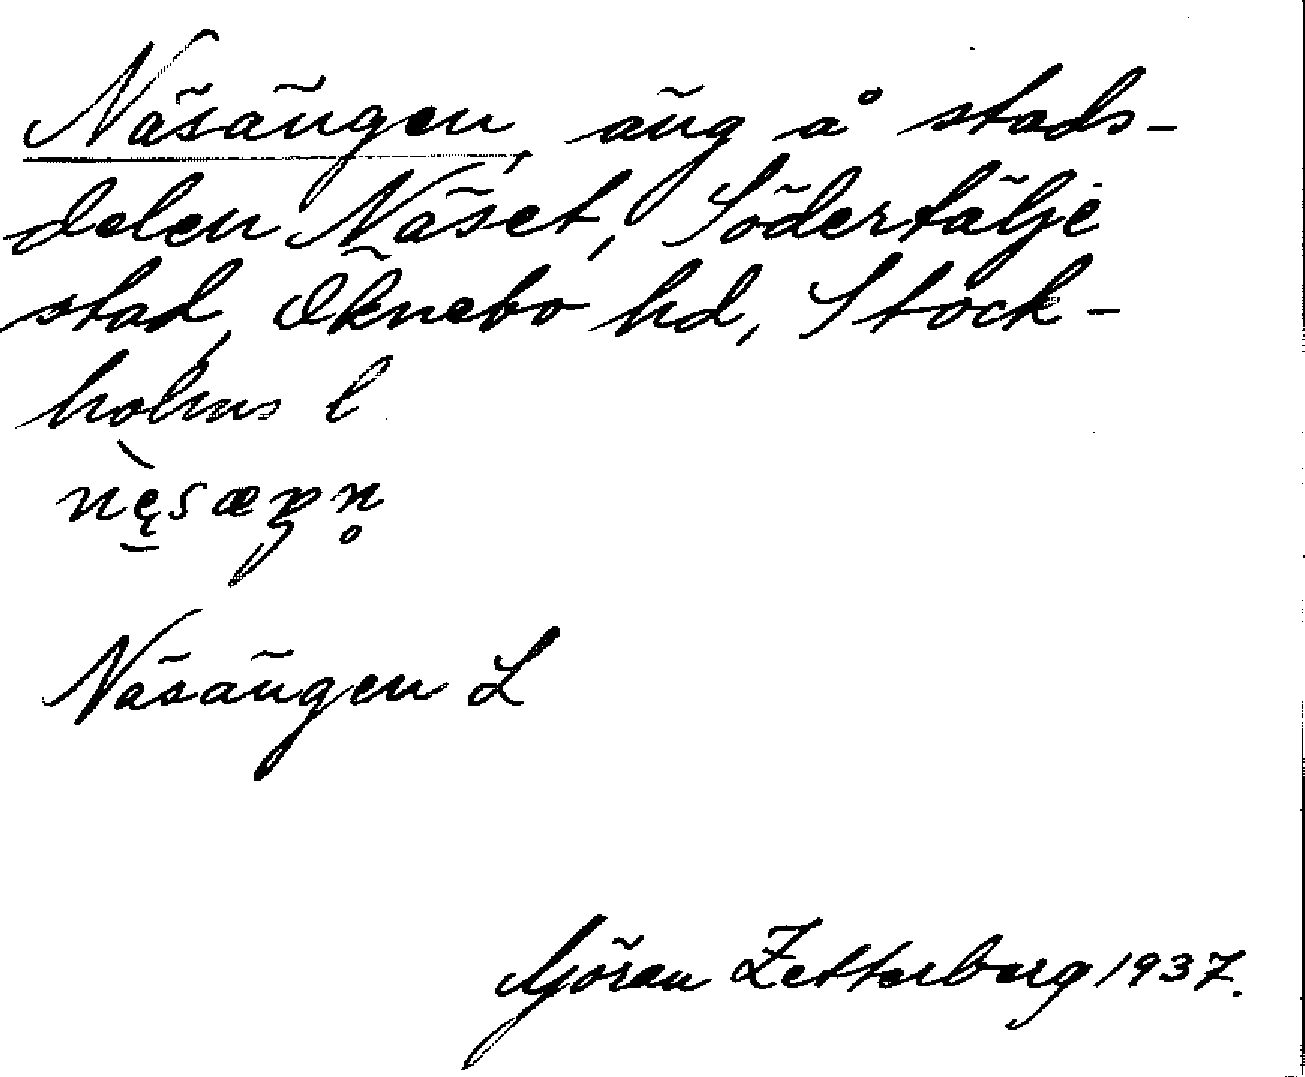 Näsängen, äng å stads-
delen Näset, Södertälje
stad, Öknebo hd, Stock-
holms l
nę̀sæŋn̥
Näsängen L
Göran Zetterberg 1937.